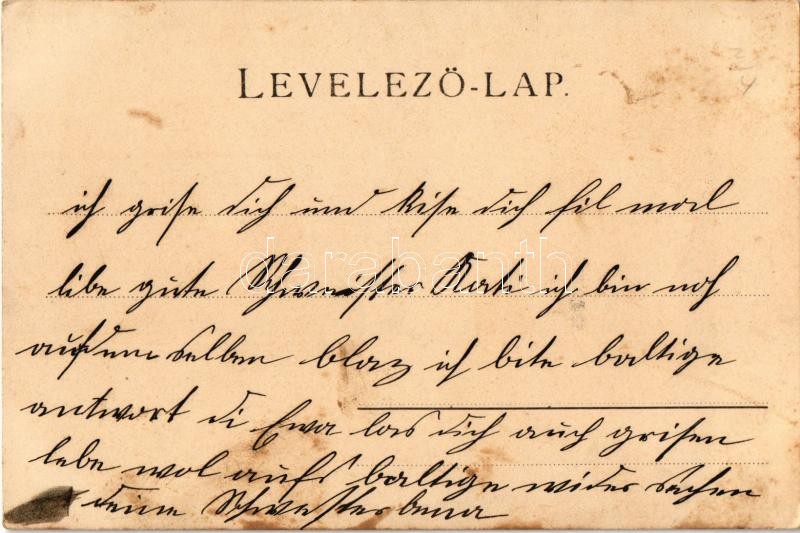 LEVELEZŐ-LAP.
ich grise dich und kise dich fil mal
libe gute Schwester Kati ich bin noh
auf dem selben blaz ich bite baltige
antwort di Ewa las dich auch grisen
lebe wol aufs baltige wider sehen
deine Schwester
darabanth